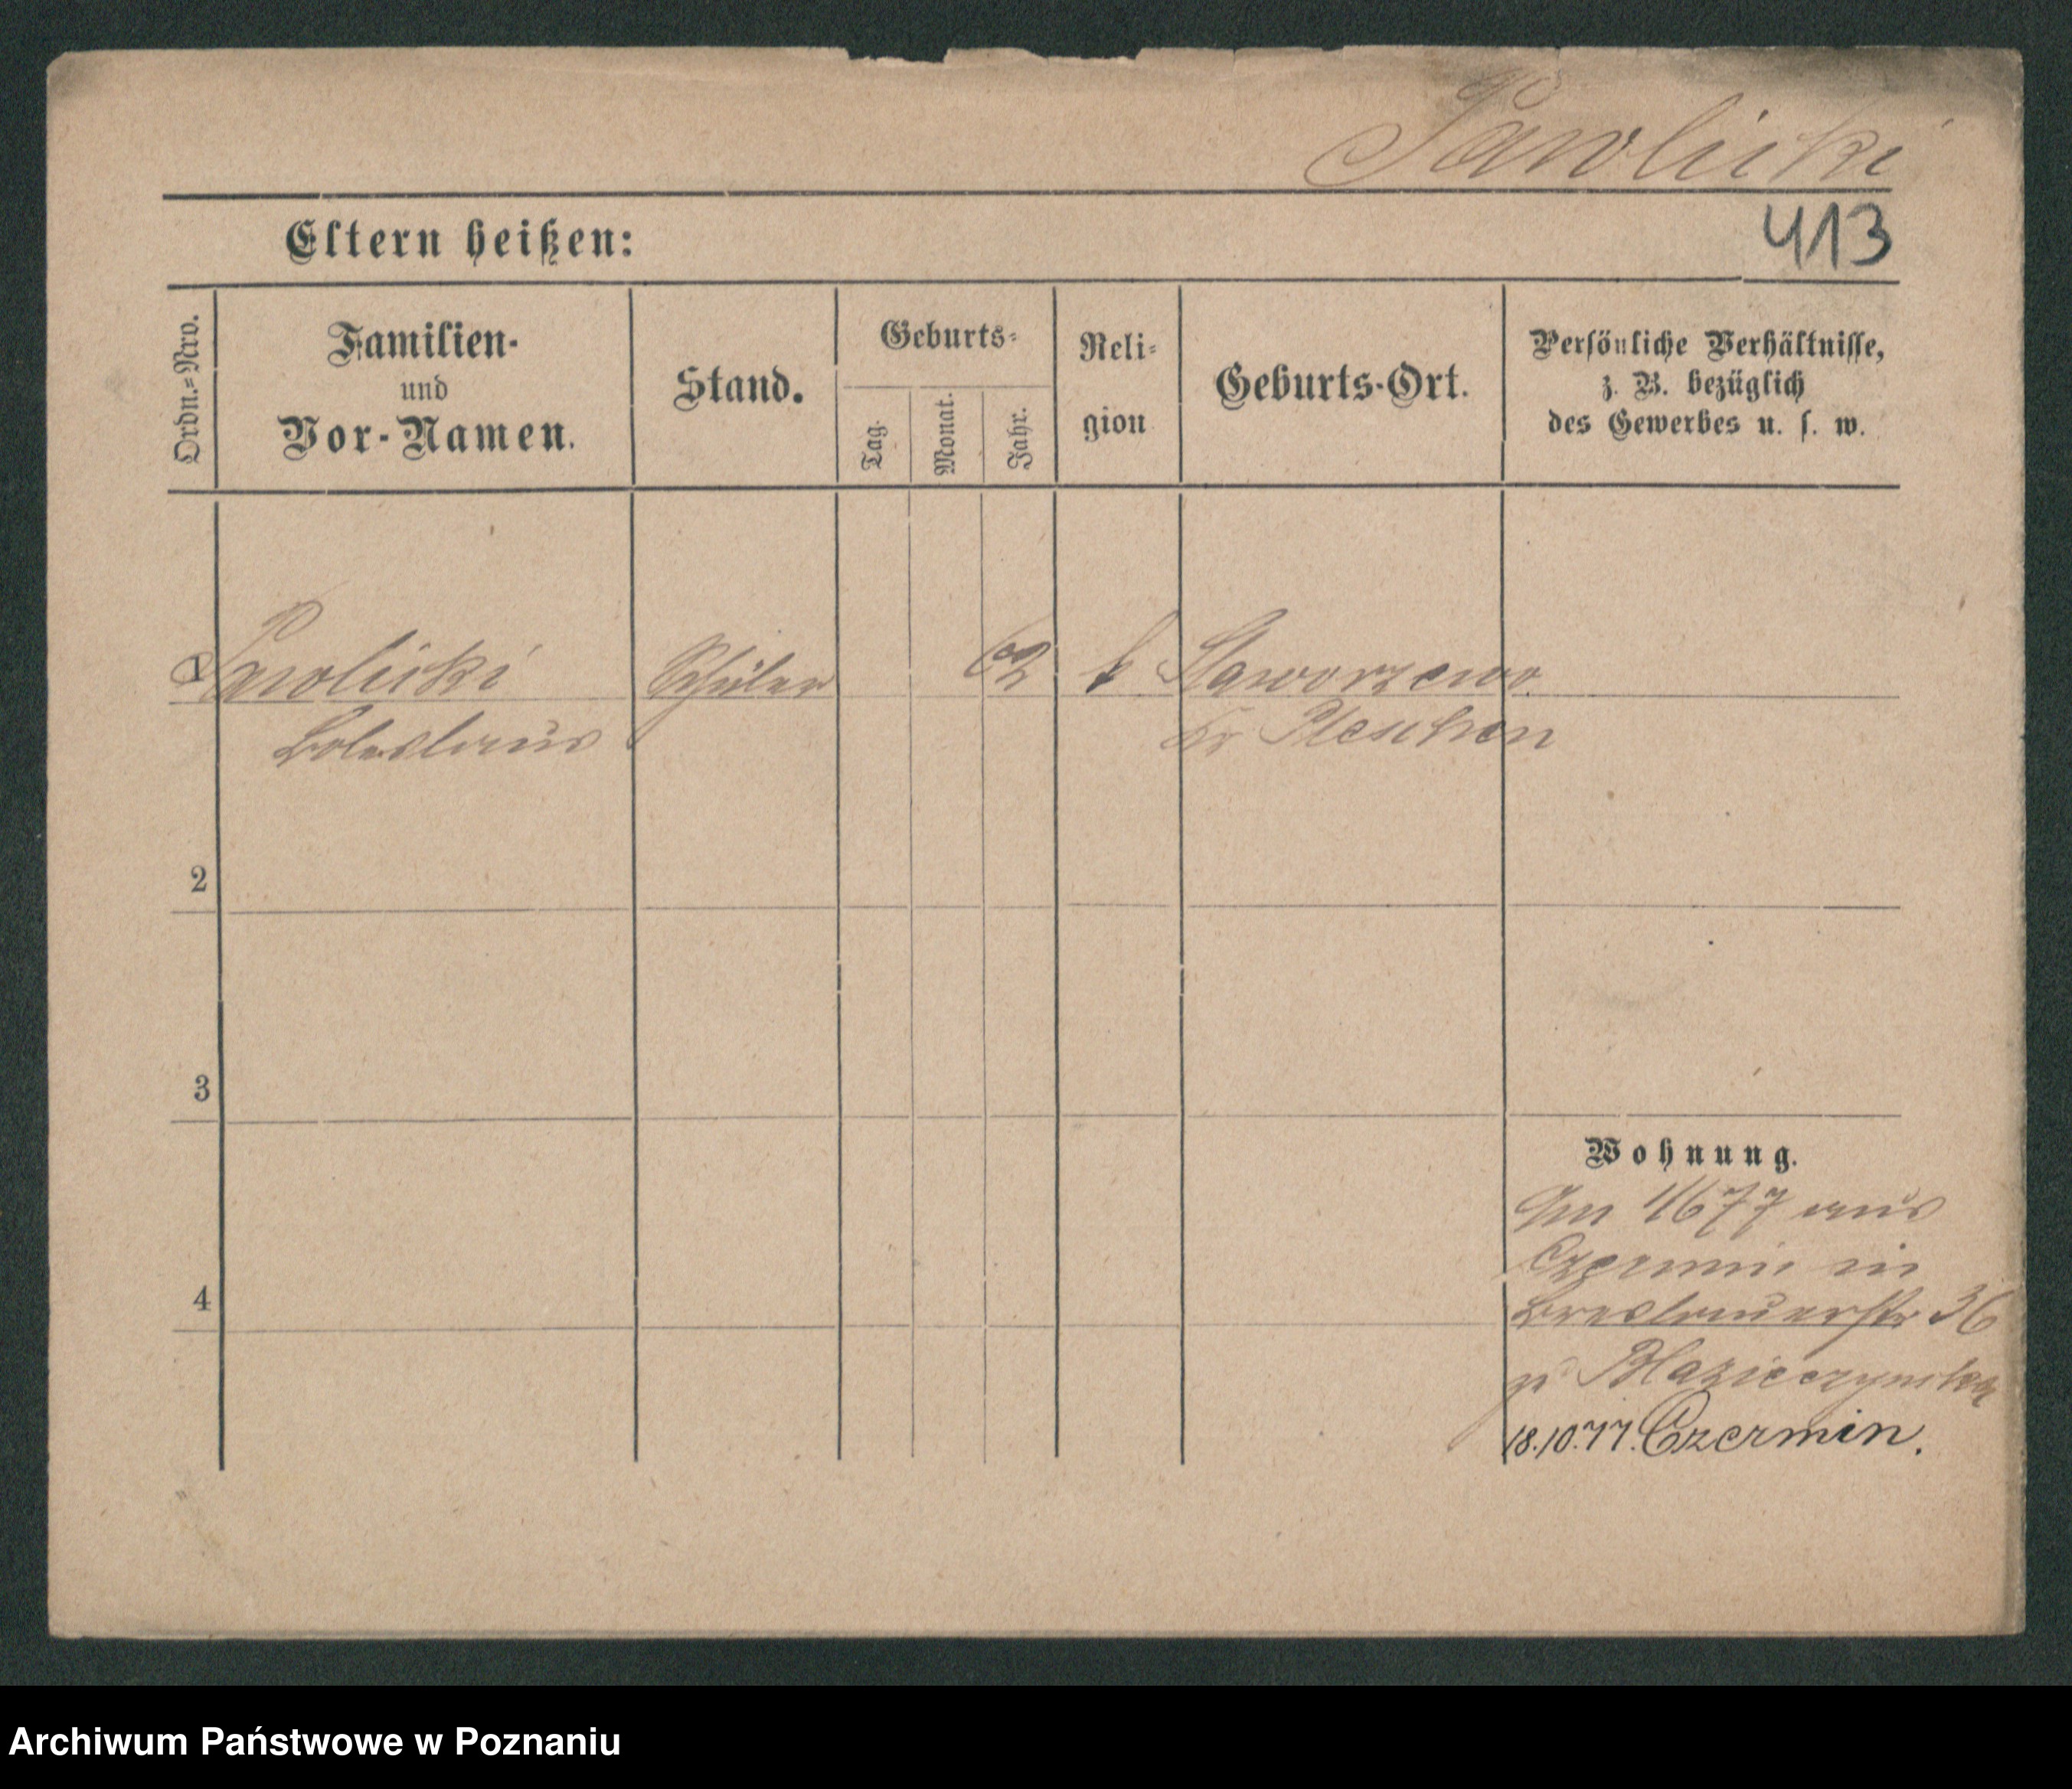 Pawlicki
Eltern heißen:
413
Ordn.=Nro.
Familien-
und
Vor-Namen.
Stand.
Geburts=
Tag.
Monat.
Jahr.
Reli=
gion
Geburts-Ort.
Persönliche Verhältnisse,
z. B. bezüglich
des Gewerbes u. s. w.
1 Pawlicki Schüler 62 k Skaworzewo
Boleslaus Kr Pleschen
2
3
Wohnung.
Am 1677 aus
Czermin in
4
Breslauerstr 36
zu
18.10.77. Czermin.
Archiwum Państwowe w Poznaniu